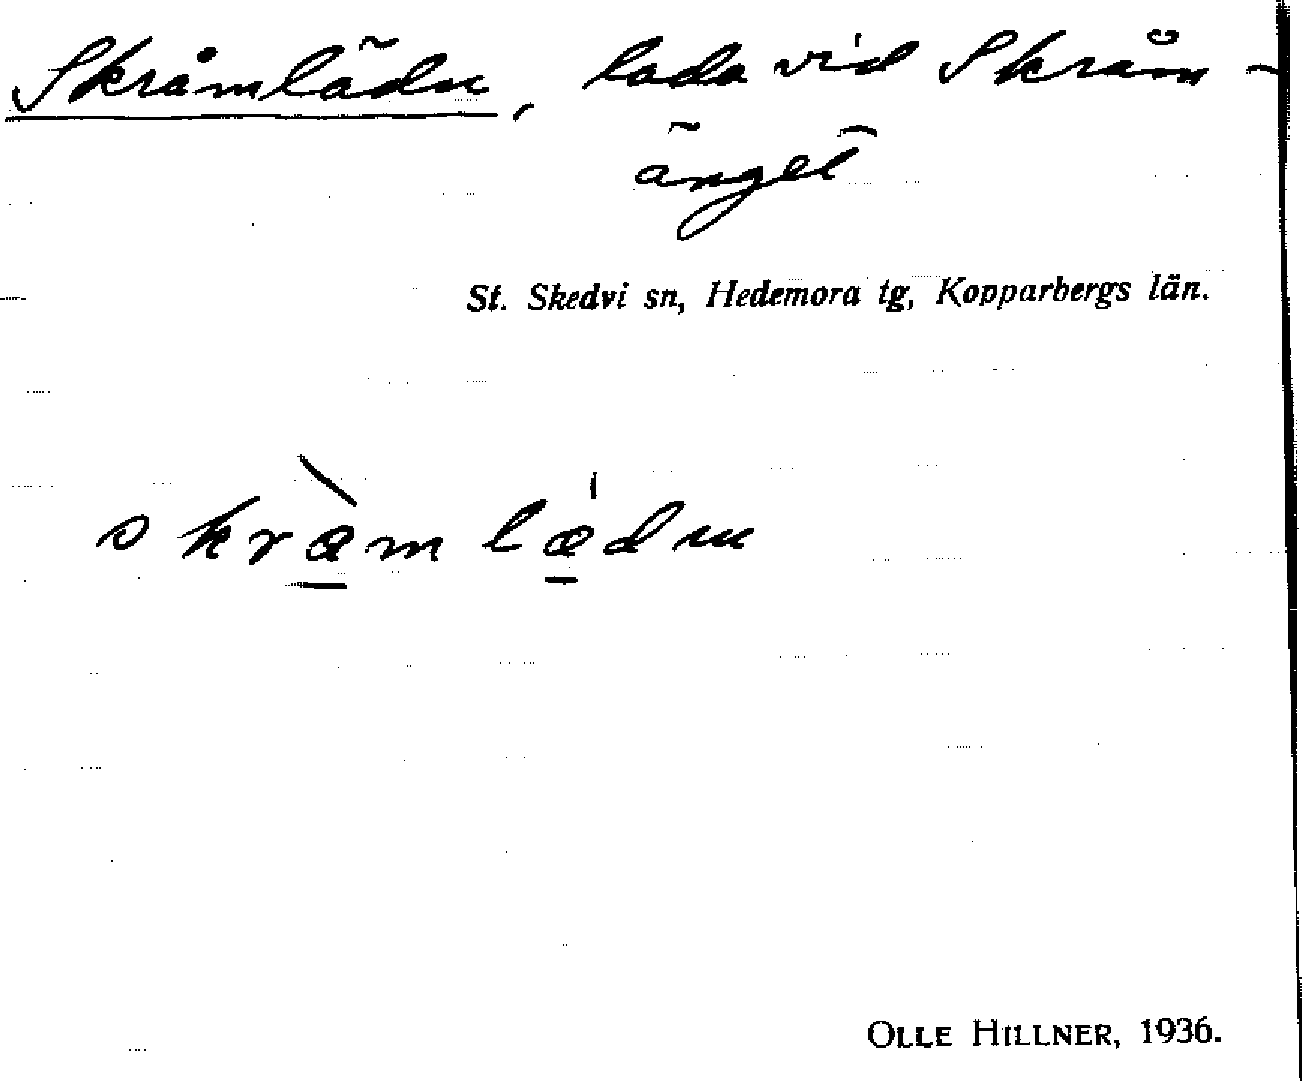 Skråmlädu, lada vid Skråm-
änget
St. Skedvi sn, Hedemora tg, Kopparbergs län.
skræ̀mlæ̍du
OLLE HILLNER, 1936.